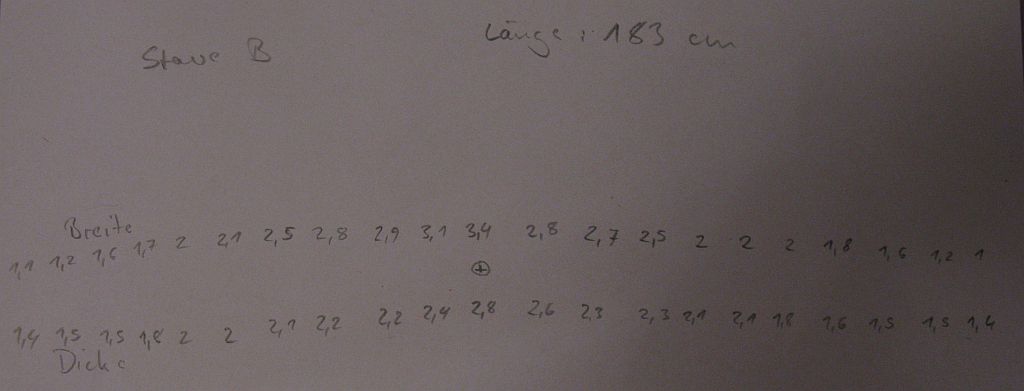 Stave B Länge : 183 cm
Breite
1,1 1,2 1,6 1,7 2 2,1 2,5 2,8 2,9 3,1 3,4 2,8 2,7 2,5 2 2 2 1,8 1,6 1,2 1
1,4 1,5 1,5 1,8 2 2 2,1 2,2 2,2 2,4 2,8 2,6 2,3 2,3 2,1 2,1 1,8 1,6 1,5 1,5 1,4
Dicke